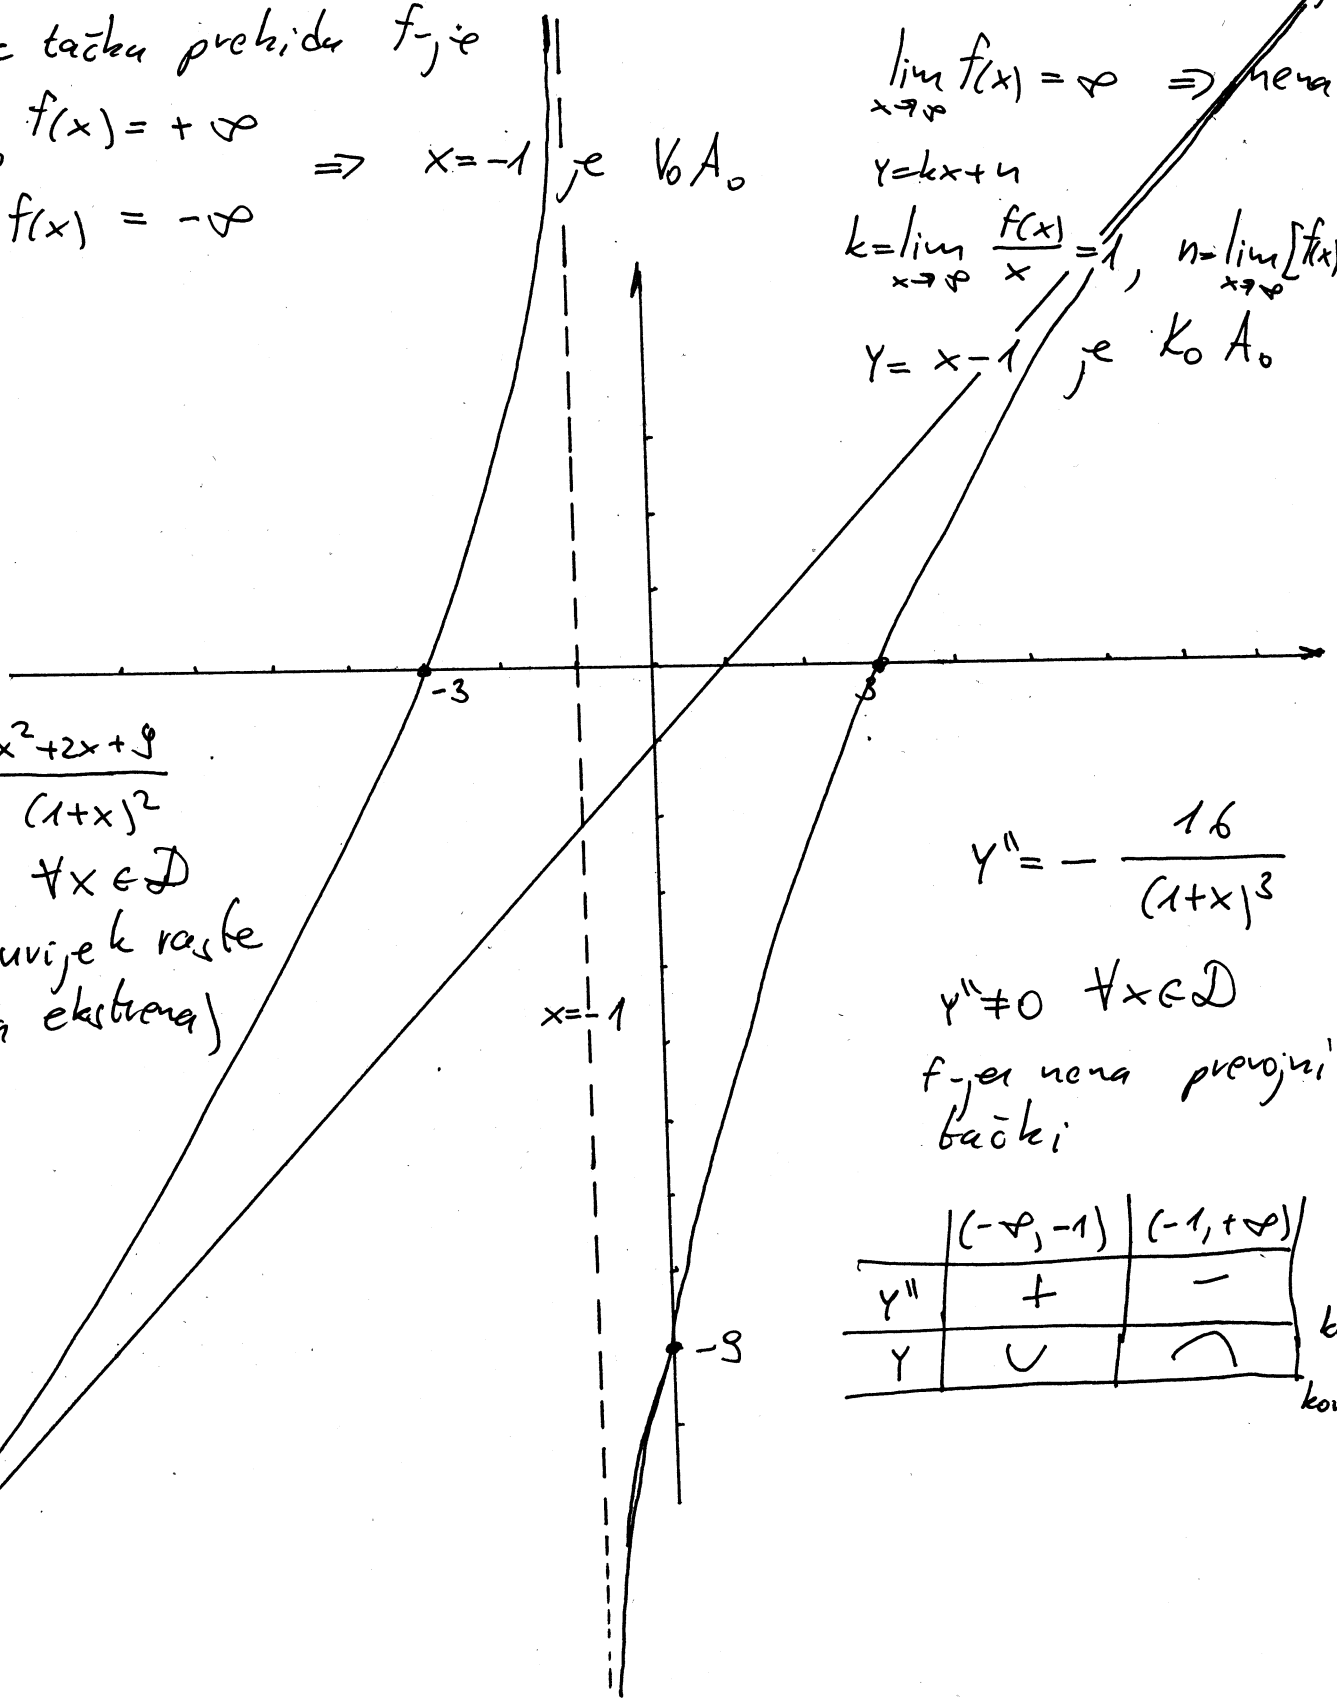 tačku prekida f-je
f(x) = + ∞
⇒ x = -1 je V.A.
f(x) = - ∞
lim f(x) = ∞ ⇒ nema
x→∞
y = kx + n
k = lim f(x)/x = 1, n = lim [f(x)
x→∞ x→∞
y = x - 1 je K.A.
-3
3
x²+2x+9
(1+x)²
∀x ∈ D
uvijek raste
ekstrema)
x = -1
-9
y" = - 16/(1+x)³
y" ≠ 0 ∀x ∈ D
f-ja nema prevojni
tački
(-∞, -1) (-1, +∞)
y" + -
y ∪ ∩